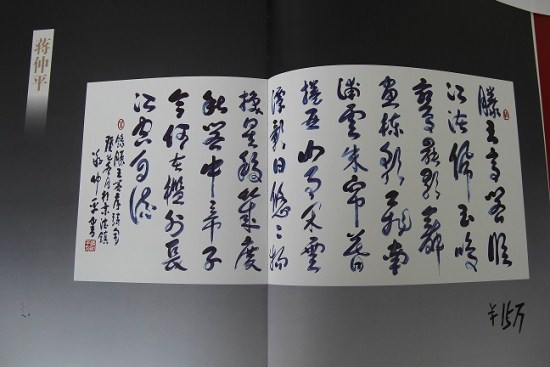 蒋仲平
滕王高阁临
江渚佩玉鸣
鸾罢歌舞
画栋朝飞南
浦雲朱帘暮
捲西山雨闲雲
潭影日悠々物
换星移几度
秋阁中帝子
今何在槛外长
江空自流
录滕王阁序诗句
于景德镇
蒋仲平书
¥15万